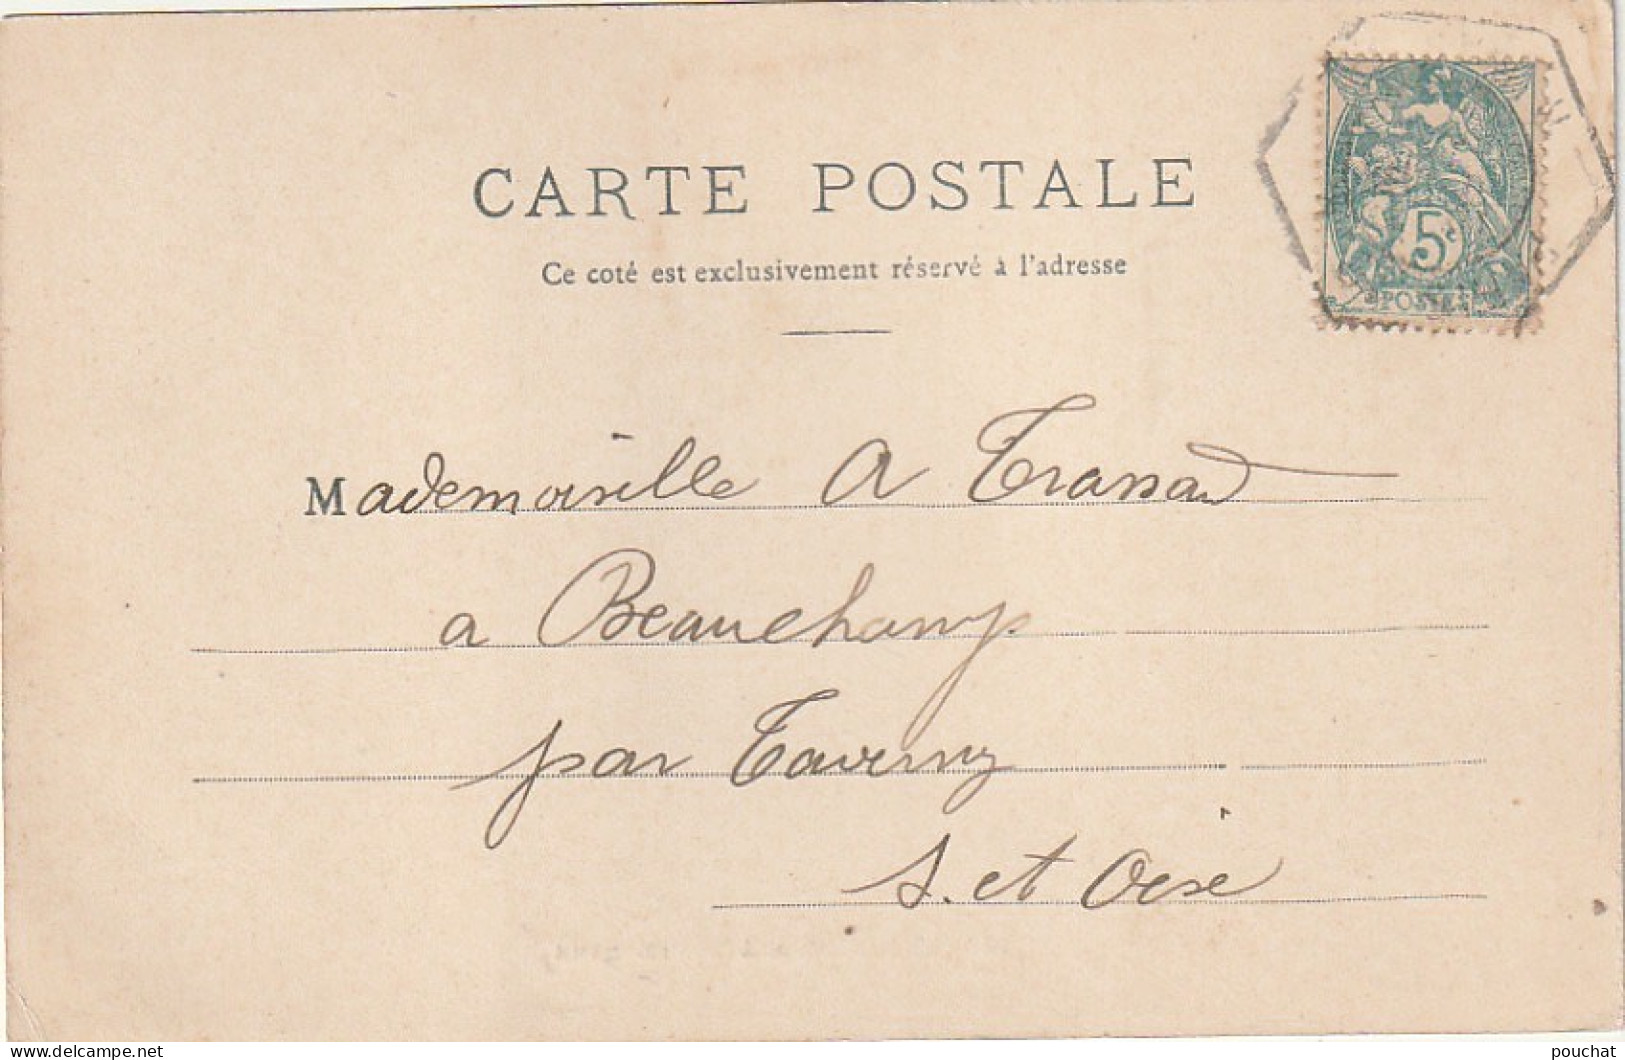 CARTE POSTALE
Ce coté est exclusivement réservé à l'adresse
5c
POSTES
Mademoiselle A
a Beauchamp
par Taverny
S. et Oise
delcampe.net
pouchat